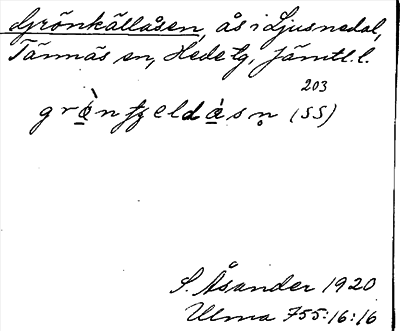 Grönkällåsen, ås i Ljusnedal,
Tännäs sn, Hede tg, Jämtl. l.
203
(SS)
S. Åsander 1920
Ulma 755:16:16